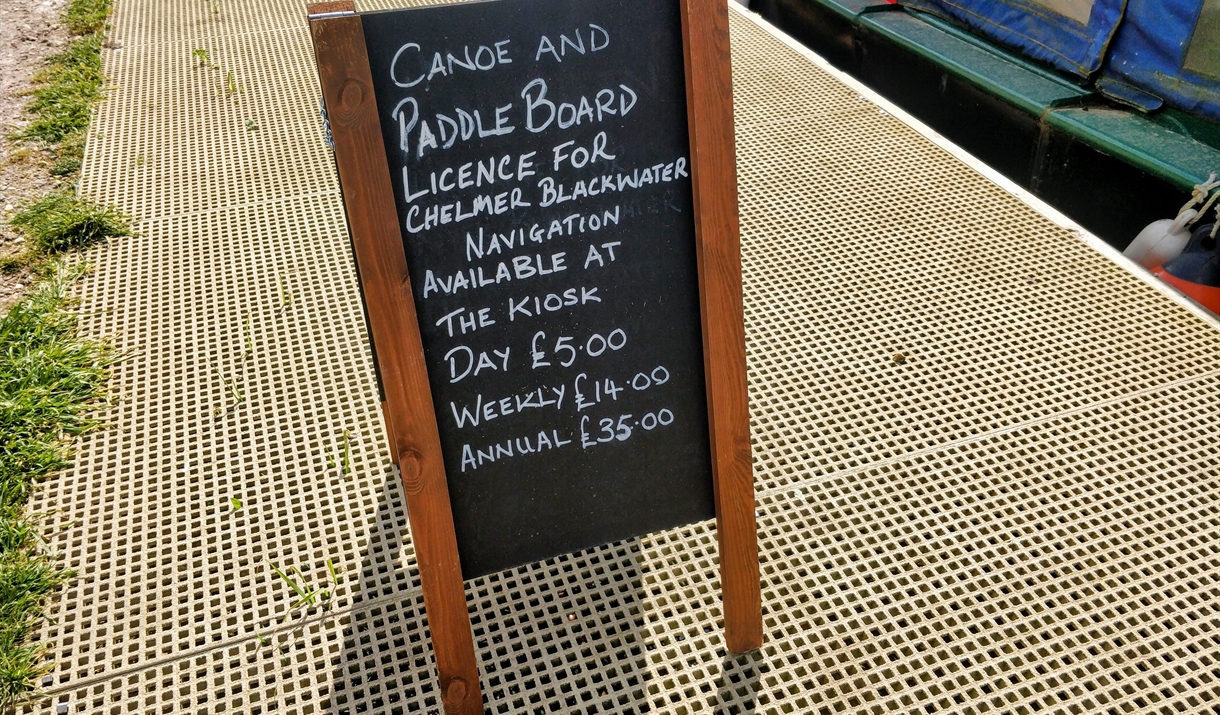 CANOE AND
PADDLE BOARD
LICENCE FOR
CHELMER BLACKWATER
NAVIGATION
AVAILABLE AT
THE KIOSK
DAY £5.00
WEEKLY £14.00
ANNUAL £35.00